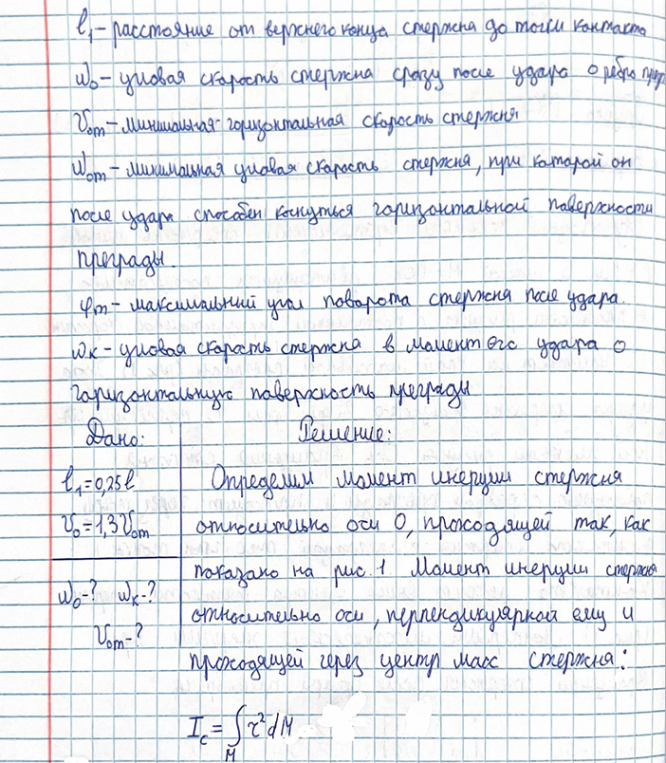 l₁ – расстояние от верхнего конца стержня до точки контакта
ω₀ – угловая скорость стержня сразу после удара о ребро
V₀ₘ – минимальная горизонтальная скорость стержня
ω₀ₘ – минимальная угловая скорость стержня, при которой он
после удара способен коснуться горизонтальной поверхности
преграды.
φₘ – максимальный угол поворота стержня после удара.
ωк – угловая скорость стержня в момент его удара о
горизонтальную поверхность преграды
Дано:
l₁ = 0,25l
V₀ = 1,3V₀ₘ
ω₀ – ? ωк – ?
V₀ₘ – ?
Решение:
Определим момент инерции стержня
относительно оси O, проходящей так, как
показано на рис. 1 Момент инерции стержня
относительно оси, перпендикулярной ему и
проходящей через центр масс стержня:
I_c = ∫_M r² dM